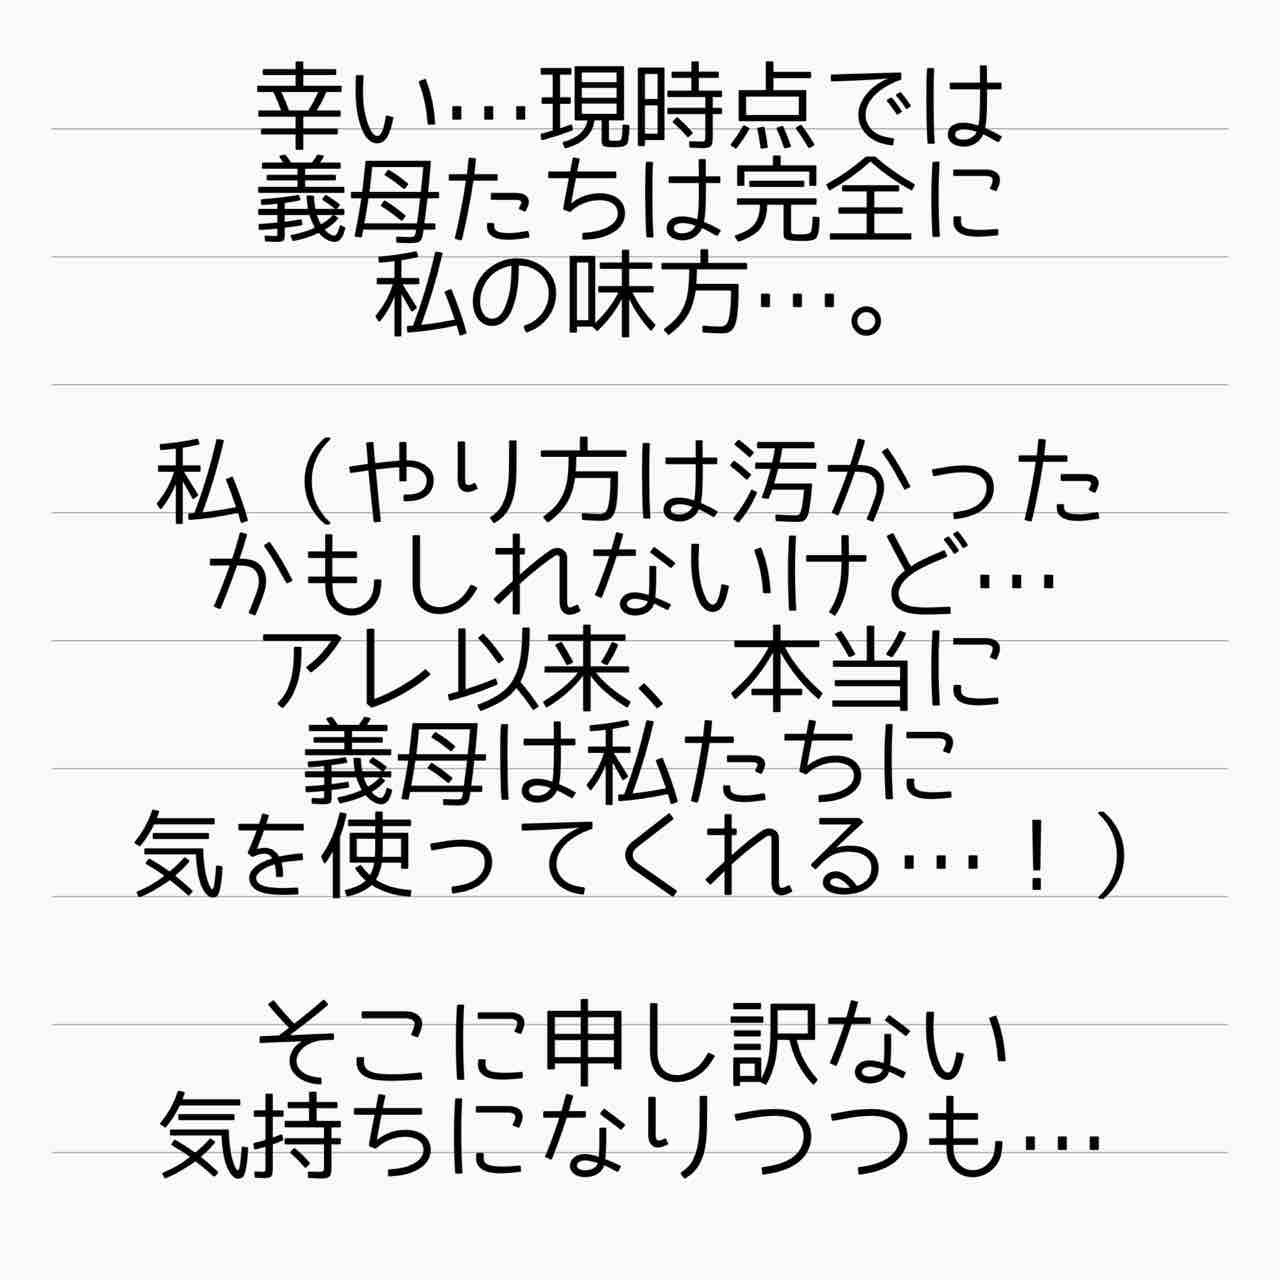 幸い…現時点では
義母たちは完全に
私の味方…。
私（やり方は汚かった
かもしれないけど…
アレ以来、本当に
義母は私たちに
気を使ってくれる…！）
そこに申し訳ない
気持ちになりつつも…